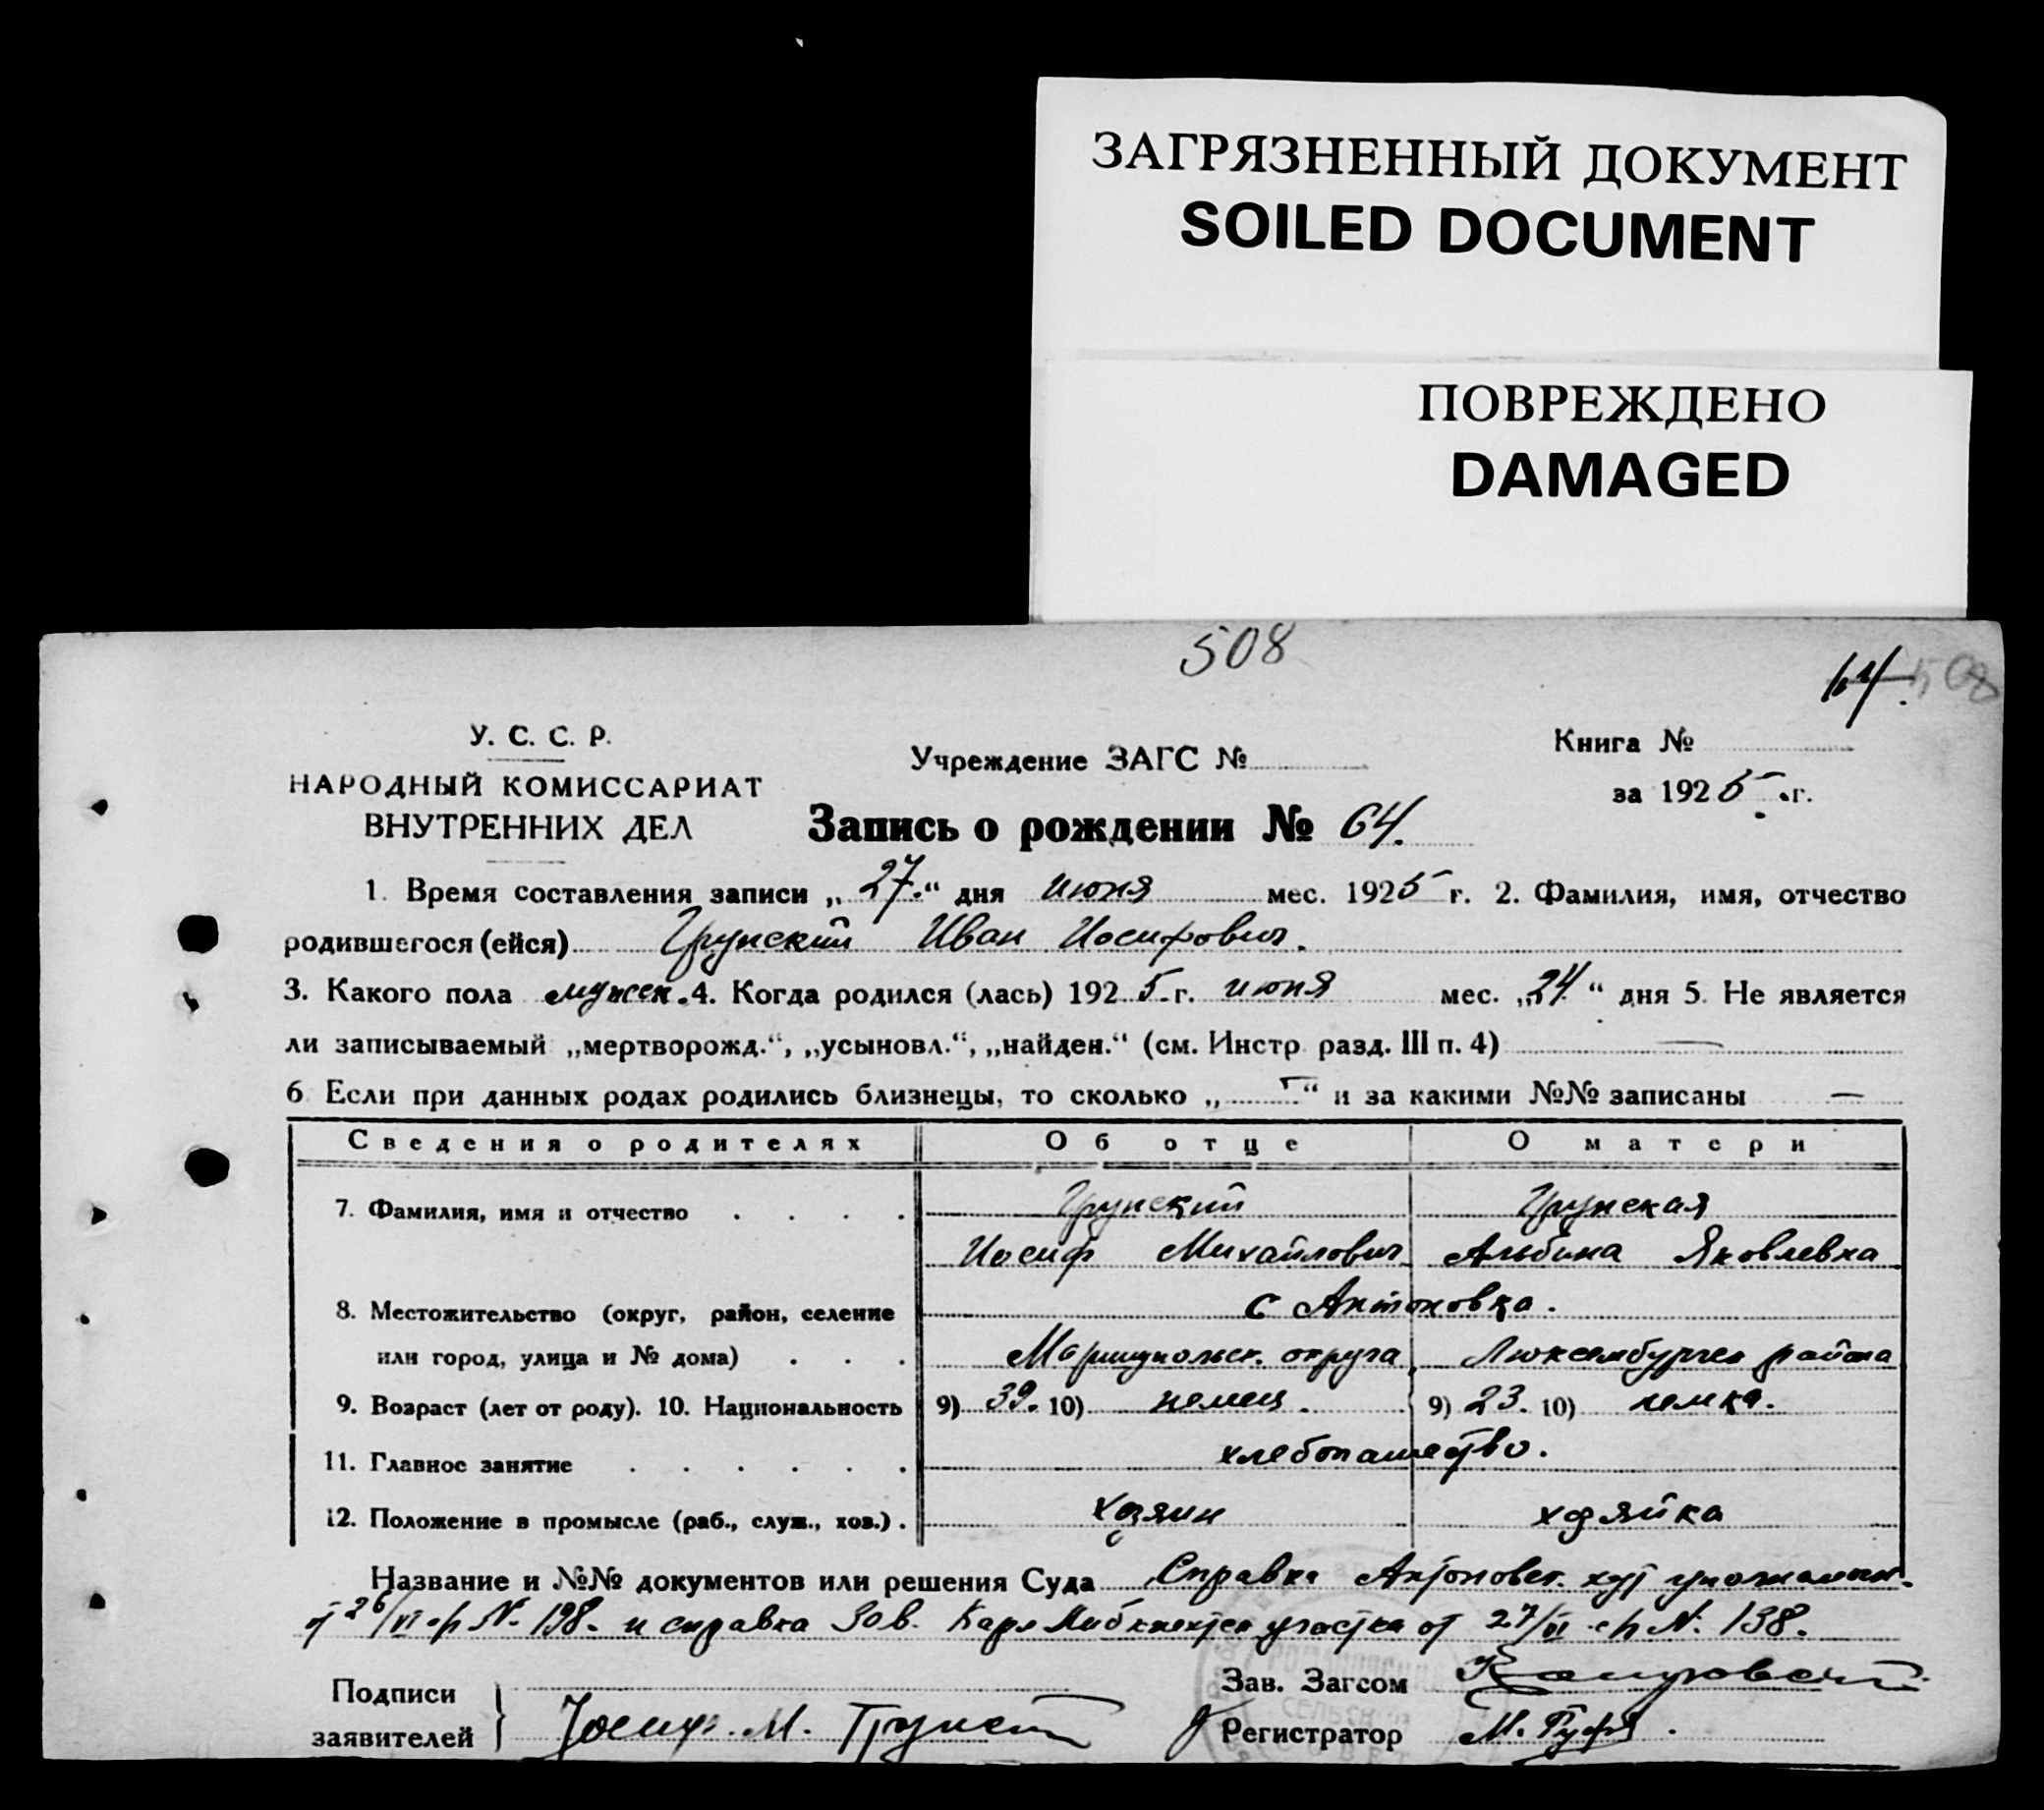 ЗАГРЯЗНЕННЫЙ ДОКУМЕНТ
SOILED DOCUMENT
ПОВРЕЖДЕНО
DAMAGED
508
64. 508
У. С. С. Р.
НАРОДНЫЙ КОМИССАРИАТ
ВНУТРЕННИХ ДЕЛ
Учреждение ЗАГС №
Книга №
за 1925 г.
Запись о рождении № 64.
1. Время составления записи „27.“ дня июня мес. 1925 г. 2. Фамилия, имя, отчество
родившегося (ейся) Грунский Иван Иосифович.
3. Какого пола мужск. 4. Когда родился (лась) 1925 г. июня мес. „24.“ дня 5. Не является
ли записываемый „мертворожд.“, „усыновл.“, „найден.“ (см. Инстр. разд. III п. 4) —
6 Если при данных родах родились близнецы, то сколько „—“ и за какими №№ записаны —
Сведения о родителях Об отце О матери
7. Фамилия, имя и отчество . . . . Грунский Грунская
Иосиф Михайлович Альбина Яковлевна
8. Местожительство (округ, район, селение с Антоновка.
или город, улица и № дома) . . . Мариупольск. округа Люксембургск района
9. Возраст (лет от роду). 10. Национальность 9) 39. 10) немец. 9) 23. 10) немка.
11. Главное занятие . . . . . . хлебопашество.
12. Положение в промысле (раб., служ., хоз.) . хозяин хозяйка
Название и №№ документов или решения Суда Справка Антоновск. хут
от 26/VI с/г №. 198. и справка Зав. Карл Либкнехтск участка от 27/VI с/г №. 138.
Подписи
заявителей
Иосиф. М. Грунск
Зав. Загсом
Регистратор М.